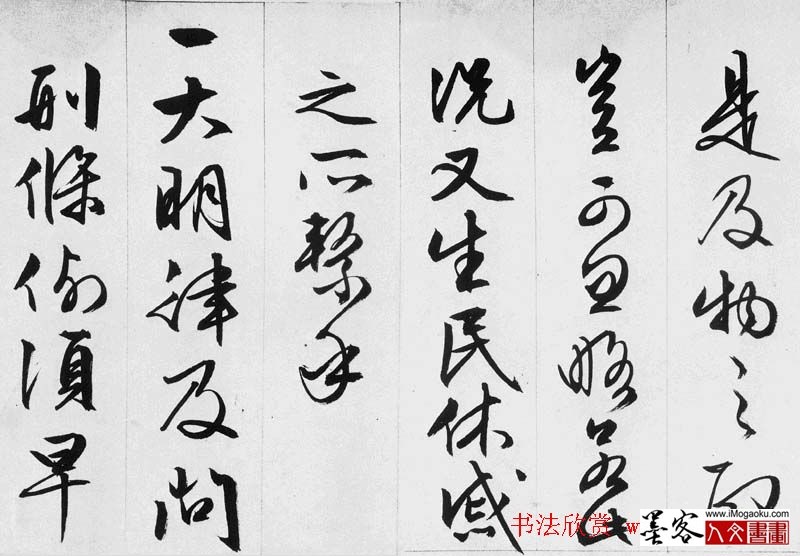 是及物之
豈可忽略若此
况又生民休戚
之所繫乎
一大明律及問
刑條例須早
书法欣赏 w
墨客
www.iMogaoku.com
人文書畫